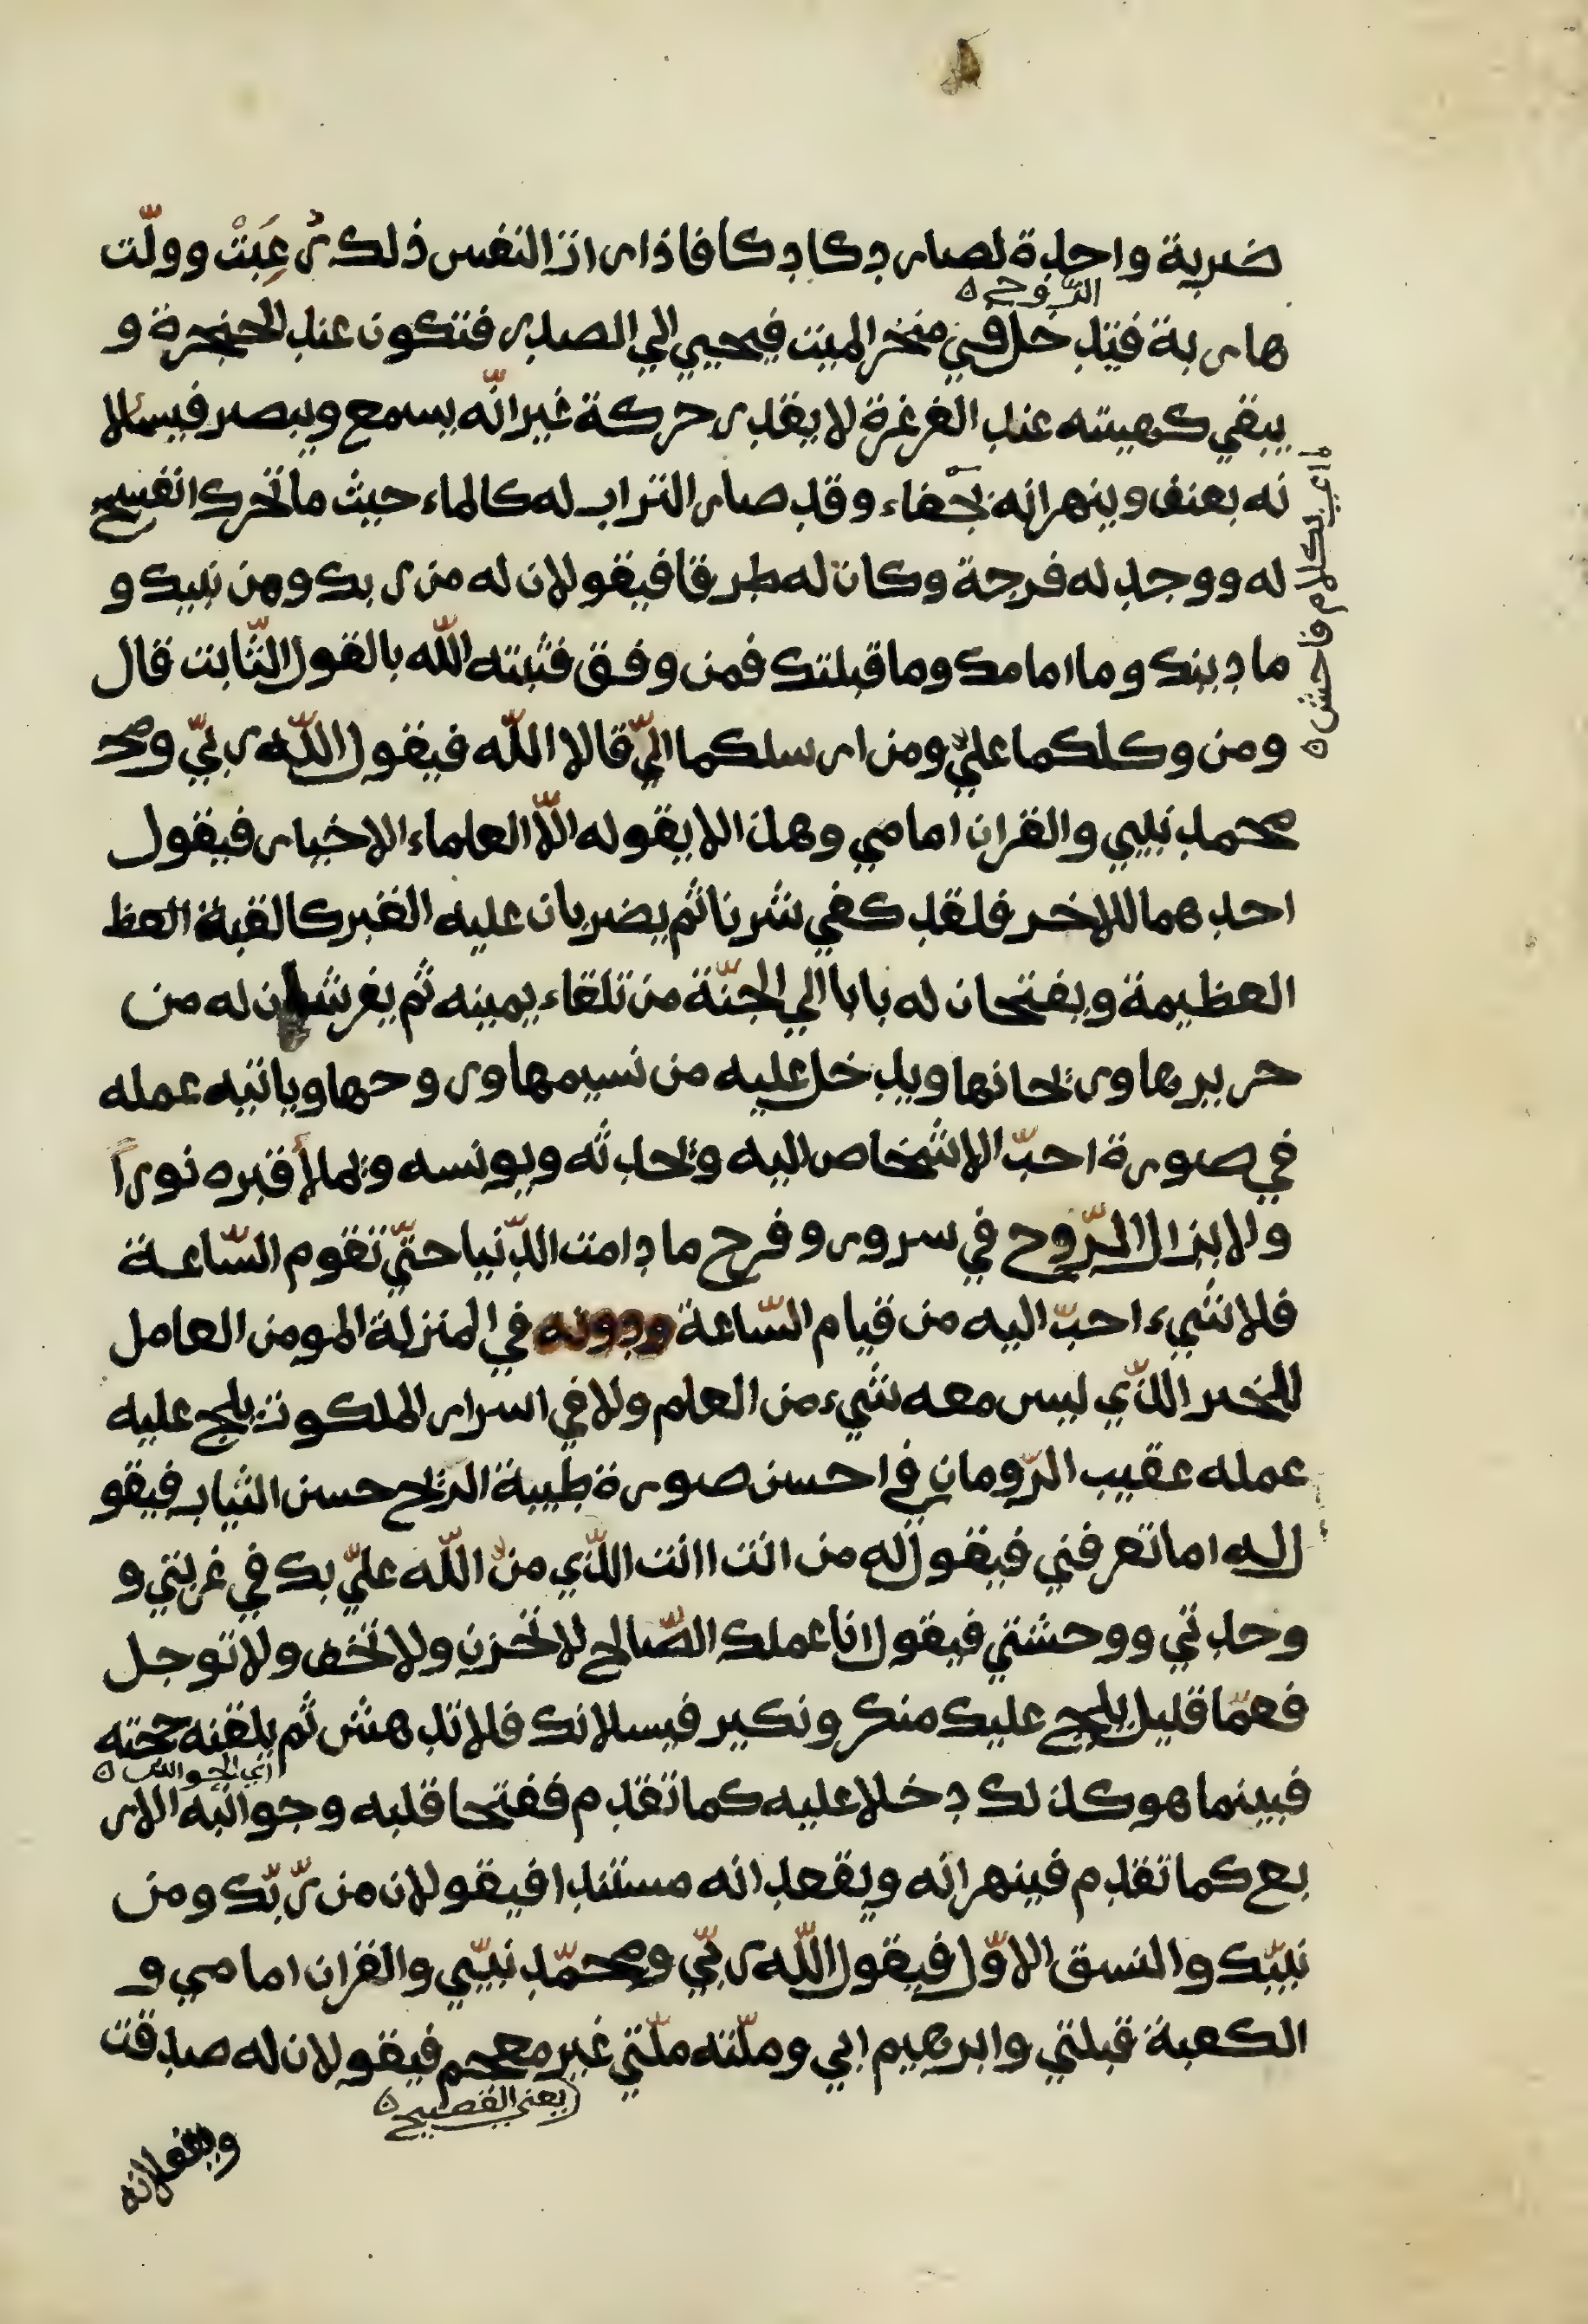 ضربة واحدة لصار دكا دكا فاذا رات النفس ذلك رعبت وولّت
الروح ه
هاربة فتدخل في منخر الميت فيحيي الي الصدر فتكون عند الحنجرة و
يبقي كهيته عند الغرغرة لا يقدر حركة غير انّه يسمع ويبصر فيسالا
نه بعنف وينهرانه بجفاء وقد صار التراب له كالماء حيث ما تحرك انفسح
له ووجد له فرجة وكان له طرقا فيقولان له من ربك ومن نبيك و
ما دينك وما امامك وما قبلتك فمن وفق فثبته اللّه بالقول الثّابت قال
ومن وكلكما عليّ ومن ارسلكما اليّ قالا اللّه فيقول اللّه ربّي ومح
محمد نبيي والقران امامي وهذا لا يقوله الّا العلماء الاخيار فيقول
احدهما للاخر فلقد كفي شرنا ثم يضربان عليه القبر كالقبة العظ
العظيمة ويفتحان له بابا الي الجنّة من تلقاء يمينه ثم يفرشان له من
حريرها وريحانها ويدخل عليه من نسيمها وروحها وياتيه عمله
في صورة احبّ الاشخاص اليه ويحدثه ويونسه ويملأ قبره نوراً
ولا يزال الرّوح في سرور وفرح ما دامت الدّنيا حتّي تقوم السّاعة
فلا شيء احبّ اليه من قيام السّاعة ودونه في المنزلة المومن العامل
للخير الذّي ليس معه شيء من العلم ولا في اسرار الملكوت يلج عليه
عمله عقيب الرّومان في احسن صورة طيبة الرّيح حسن الثياب فيقو
ل له اما تعرفني فيقول له من انت اانت الذّي منّ اللّه عليّ بك في غربتي و
وحدتي ووحشتي فيقول انا عملك الصّالح لا تحزن ولا تخف ولا توجل
فعمّا قليل يلج عليك منكر ونكير فيسلانك فلا تدهش ثم يلقنه حجته
اي الجوالب ه
فبينما هو كذلك دخلا عليه كما تقدم ففتحا قلبه وجوالبه الار
بع كما تقدم فينهرانه ويقعدانه مستندا فيقولان من رّبّك ومن
نبيّك والنسق الاوّل فيقول اللّه ربّي ومحمّد نبيّي والقران امامي و
الكعبة قبلتي وابرهيم ابي وملّته ملّتي غير معجم فيقولان له صدقت
يعني الفصيح ه
اي بكلام فاحش ه